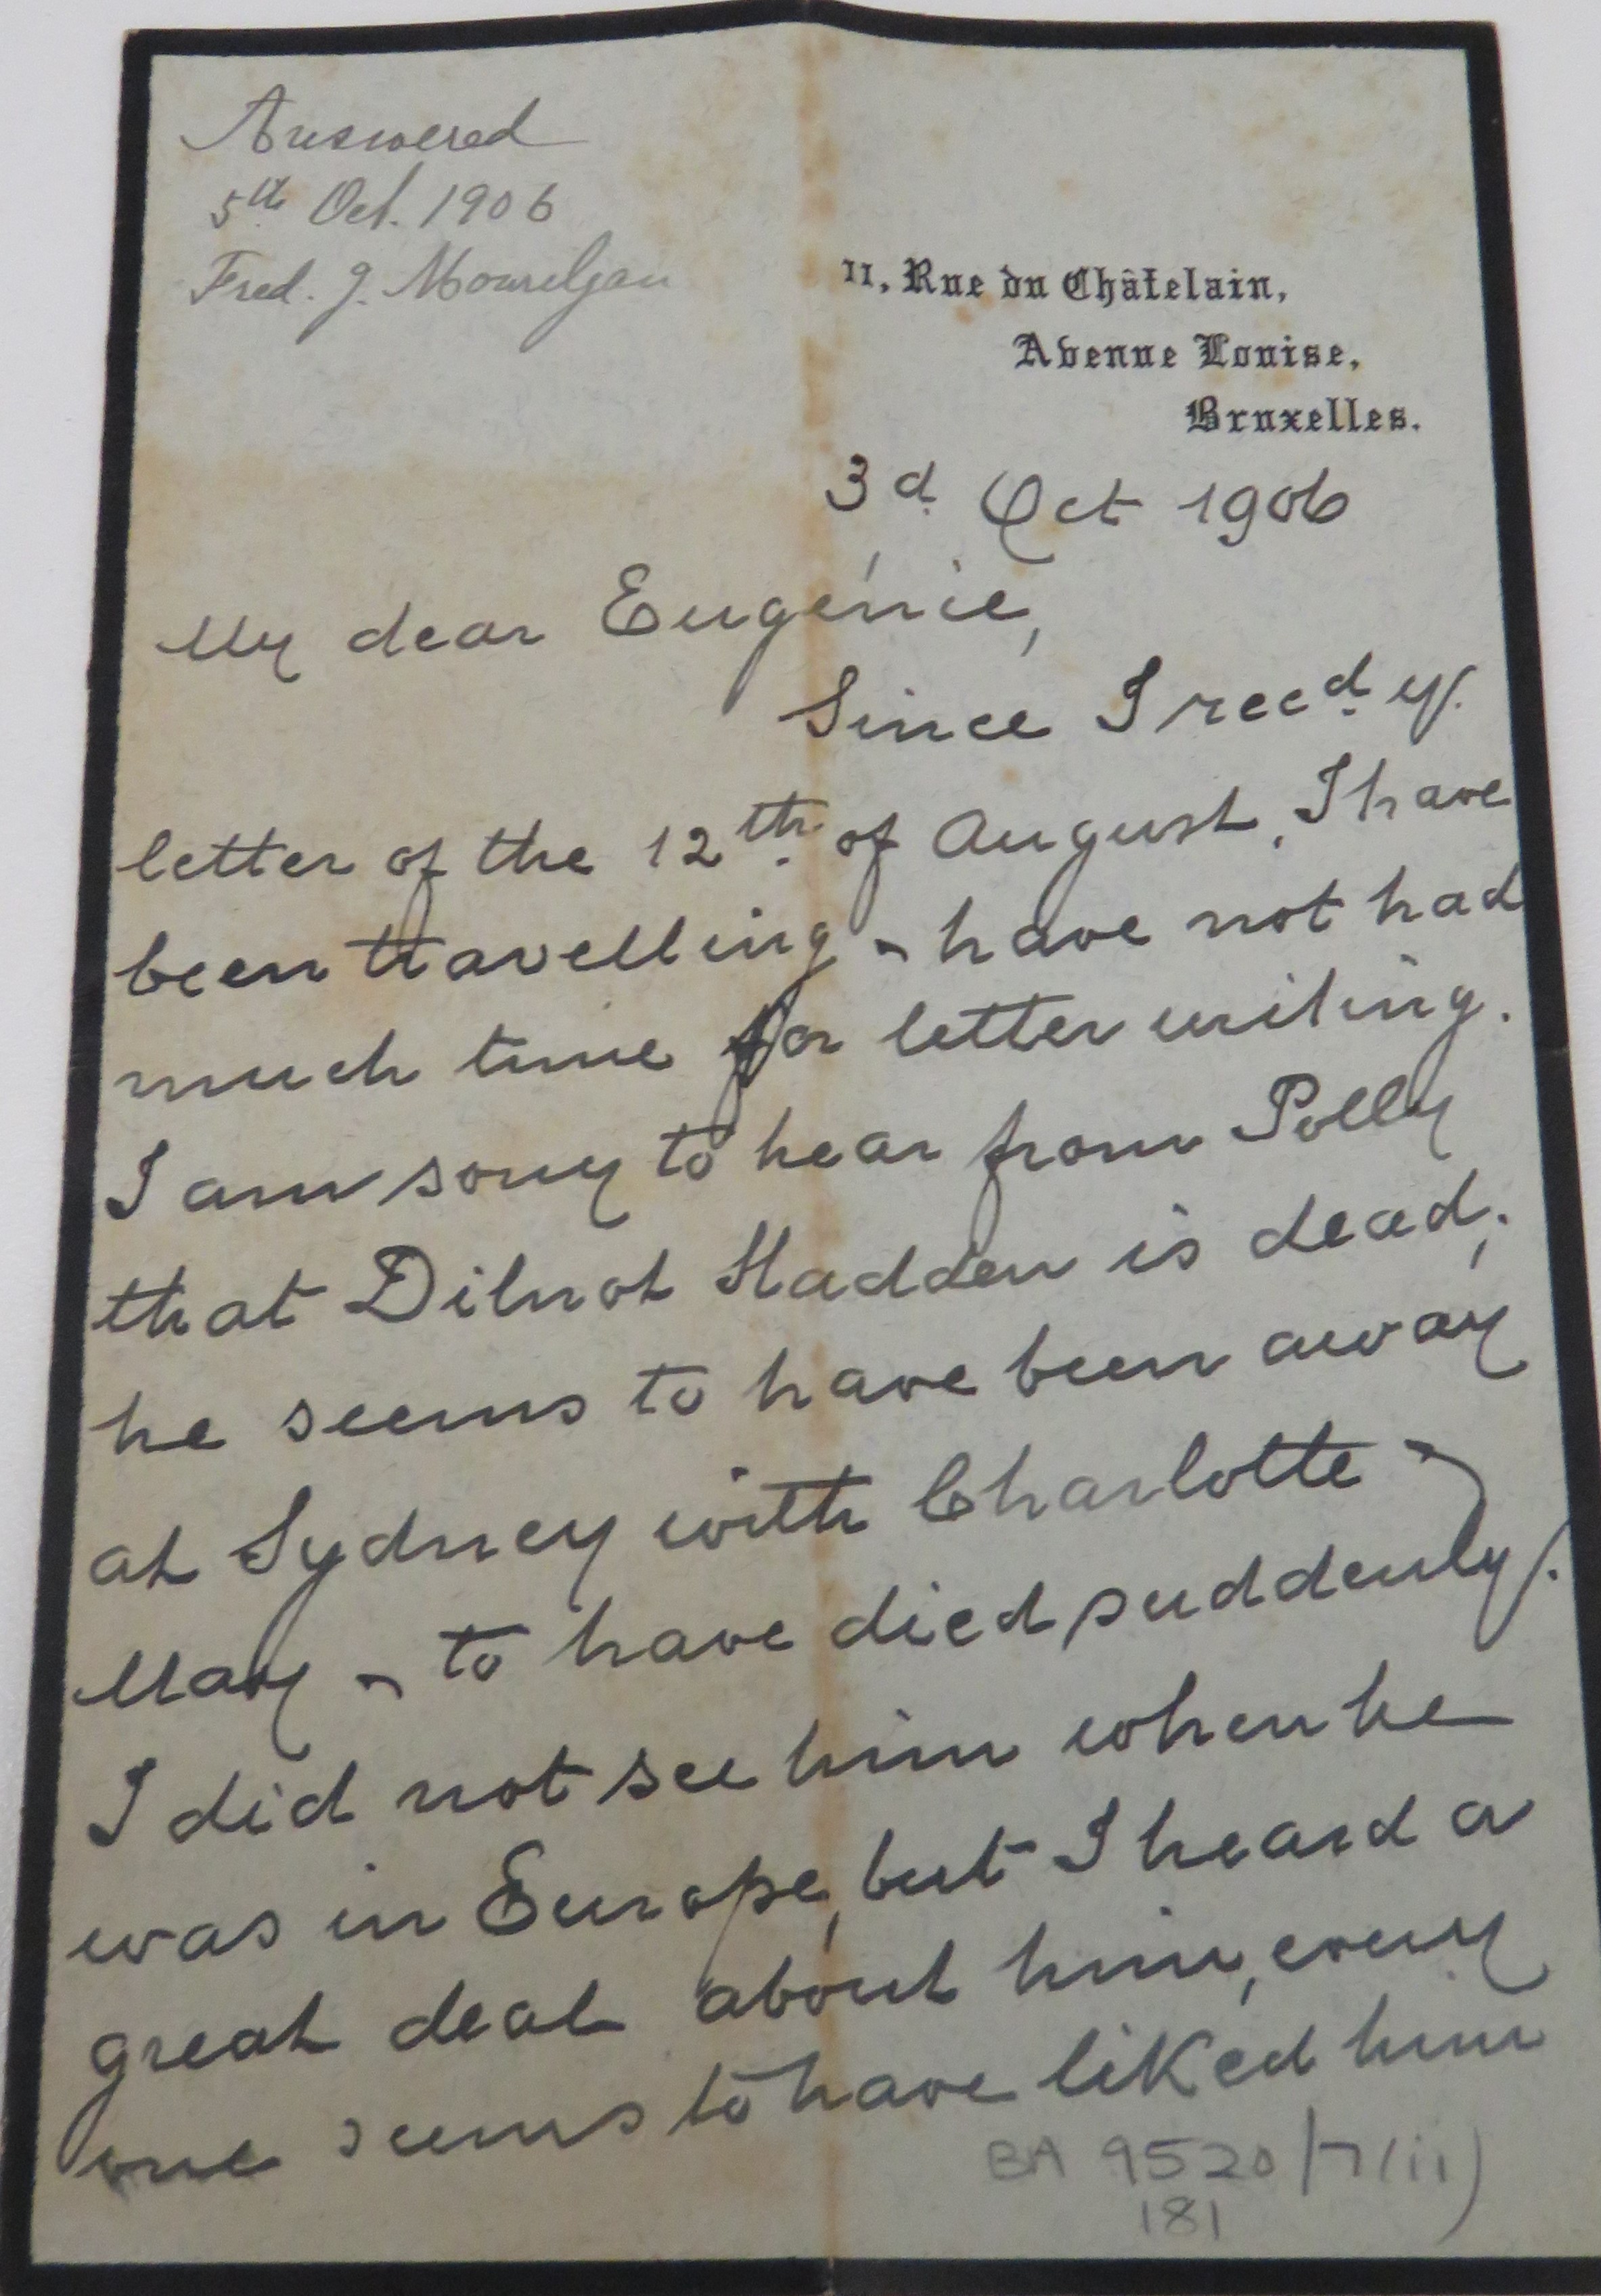 Answered
5th Oct. 1906
Fred. J. Mourilyan
11, Rue du Châtelain,
Avenue Louise,
Bruxelles.
3d Oct 1906
My dear Eugénie,
Since I recd yr.
letter of the 12th of August, I have
been travelling & have not had
much time for letter writing.
I am sorry to hear from Polly
that Dilnot Hadden is dead;
he seems to have been away
at Sydney with Charlotte &
May & to have died suddenly.
I did not see him when he
was in Europe, but I heard a
great deal about him, every
one seems to have liked him
BA 9520/7(ii)
181